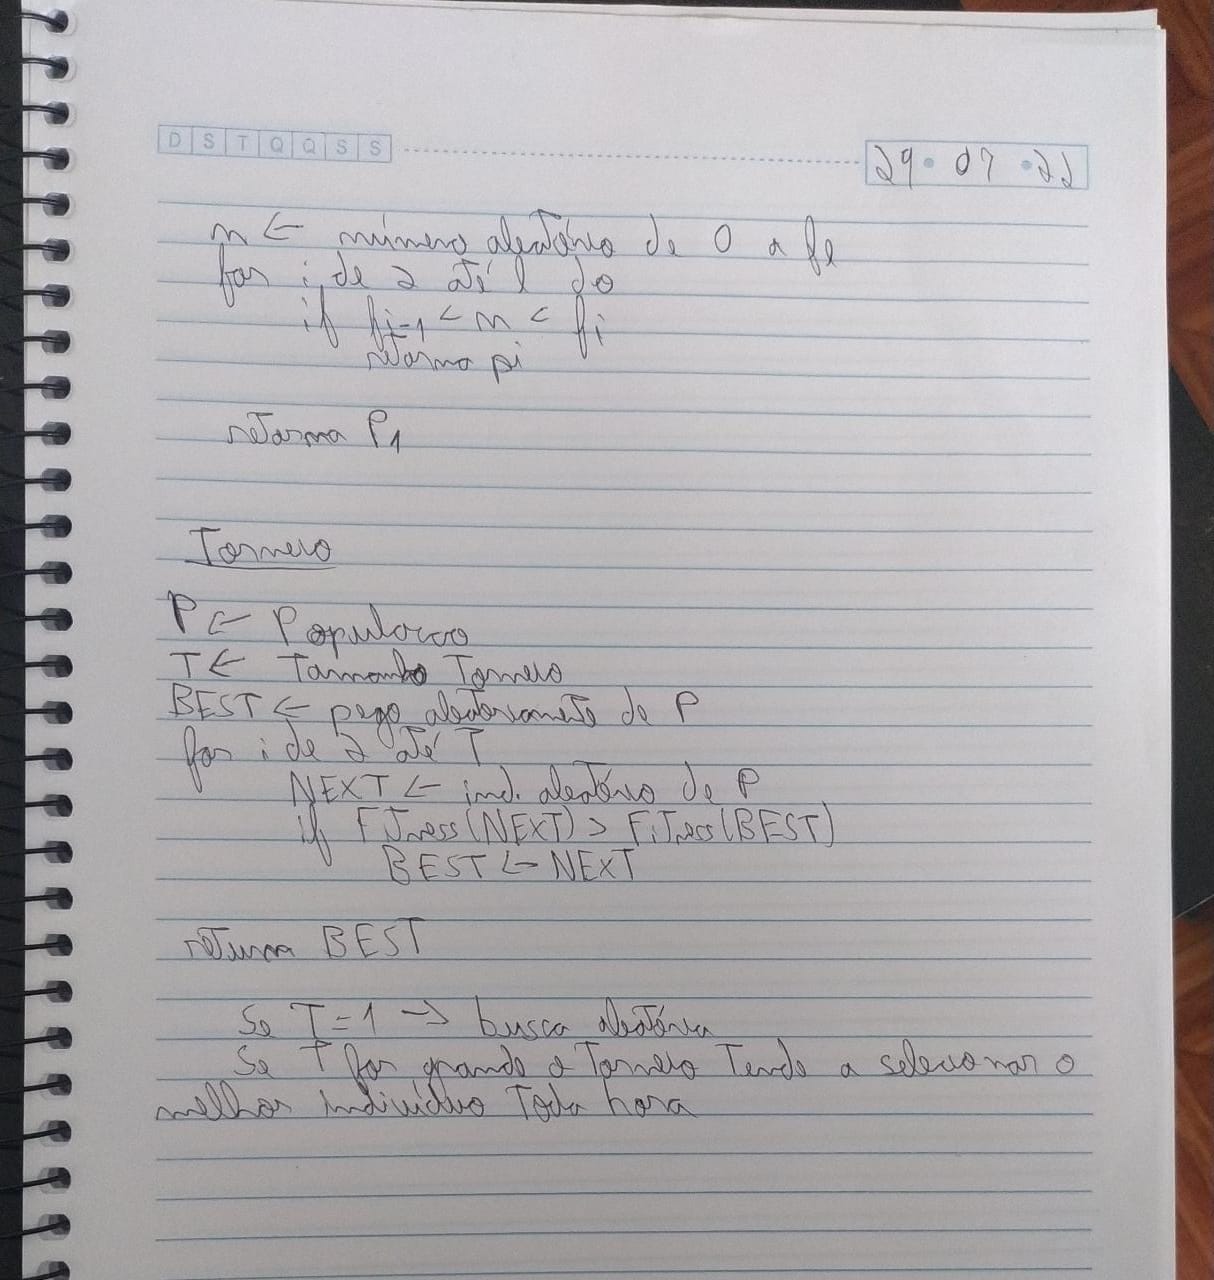 D S T Q Q S S
29 · 07 · 22
n ← número aleatório de 0 a fl
for i de 2 até l do
if fi-1 < n < fi
retorna pi
retorna P1
Torneio
P ← População
T ← Tamanho Torneio
BEST ← pego aleatoriamente de P
for i de 2 até T
NEXT ← ind. aleatório de P
if Fitness(NEXT) > Fitness(BEST)
BEST ← NEXT
retorna BEST
Se T = 1 → busca aleatória
Se T for grande o Torneio Tende a selecionar o
melhor indivíduo Toda hora